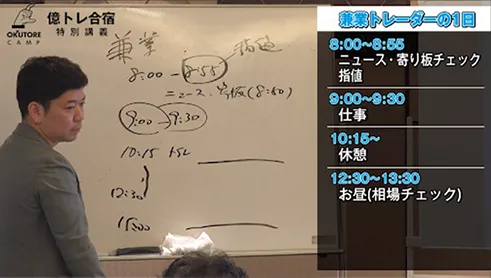 億トレ合宿
OKUTORE
CAMP
特別講義
兼業
指値
8:00-8:55
ニュース、寄板(8:50)
9:00-9:30
10:15 トイレ
12:30
15:00
兼業トレーダーの1日
8:00~8:55
ニュース・寄り板チェック
指値
9:00~9:30
仕事
10:15~
休憩
12:30~13:30
お昼(相場チェック)